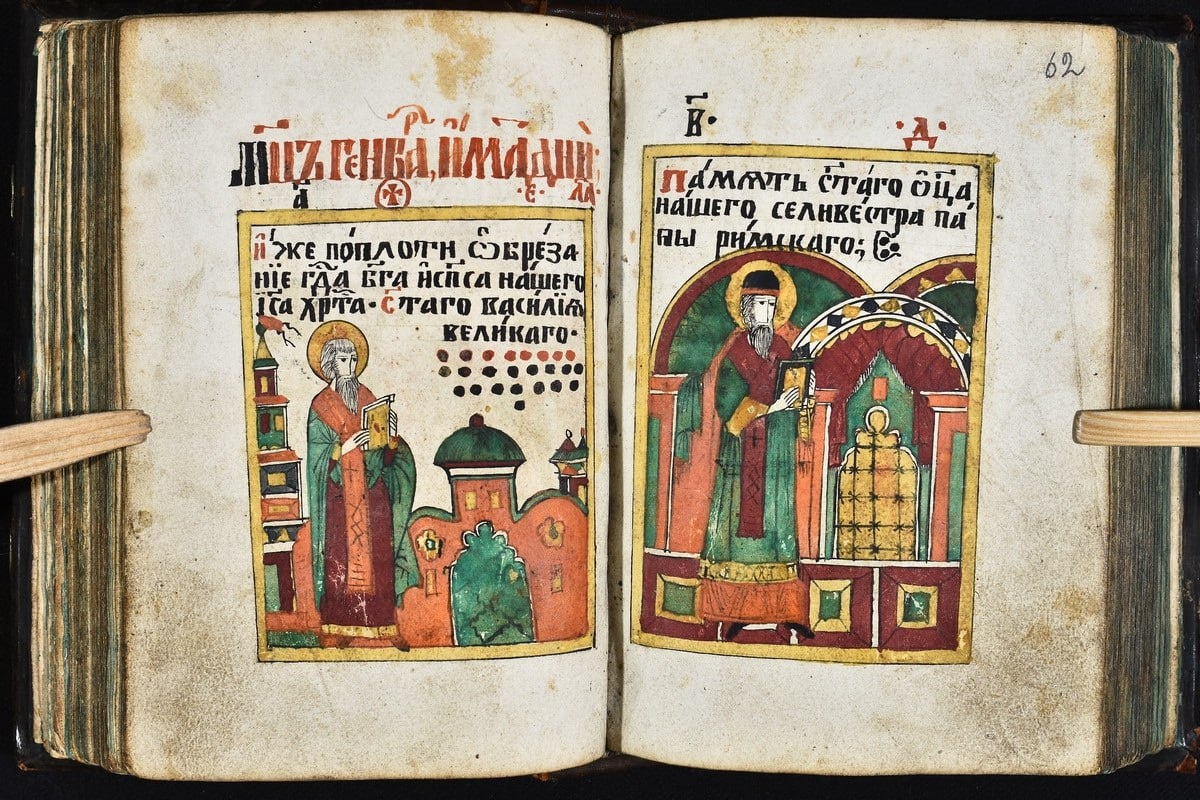 Мц҃ъ генва́, и́мА дні́й;
а҃ ·є҃· ла҃·
И҆́же поплоти ѡ҆брѣ́за
нїе гд҇а бг҃а и҆сп҃са на́шего
і҆са хрт҇а· ст҃аго васи́лїѧ
вели́каго·
62
в҃· ·д҃·
Па́мѧть ст҃а́го ѻ҆ц҃а
на́шего селиве́стра па́
пы ри́мскаго;